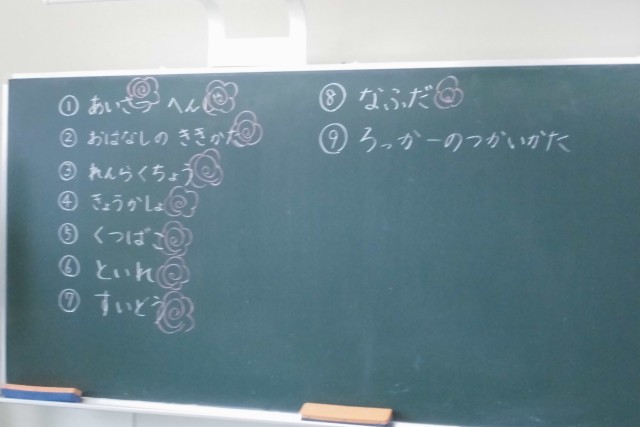 ① あいさつ へんじ
② おはなしの ききかた
③ れんらくちょう
④ きょうかしょ
⑤ くつばこ
⑥ といれ
⑦ すいどう
⑧ なふだ
⑨ ろっかーのつかいかた